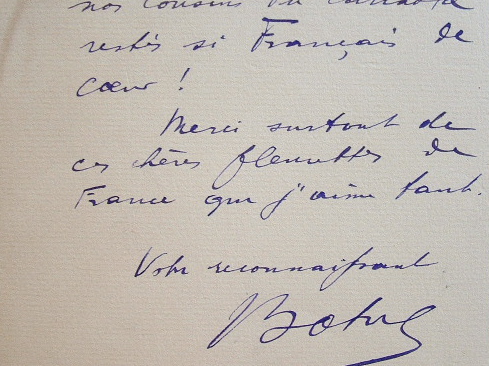 nos cousins du Canada
restés si Français de
cœur !
Merci surtout de
ces chères fleurettes de
France que j'aime tant.
Votre reconnaissant
Botrel